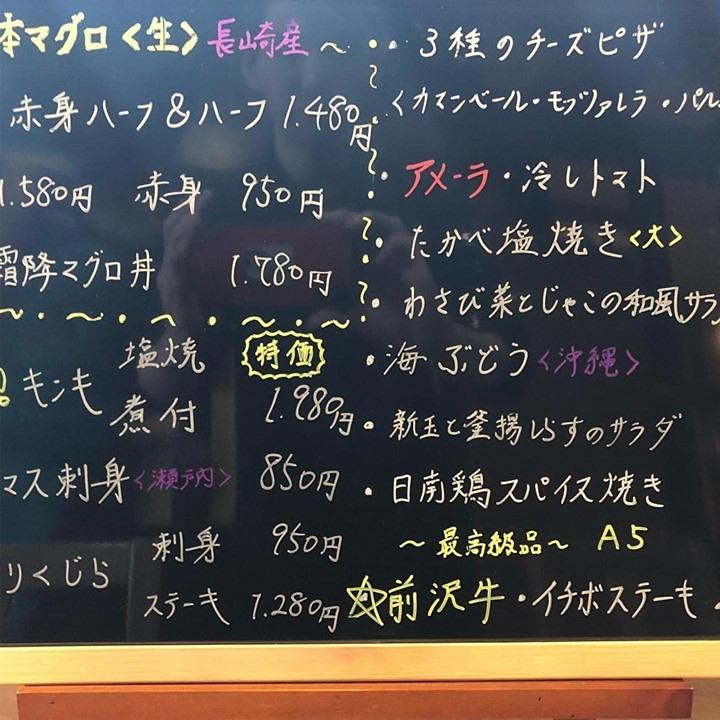 本マグロ〈生〉長崎産〜
赤身ハーフ&ハーフ 1.480円
1.580円 赤身 950円
霜降マグロ丼 1.780円
キンキ 塩焼 特価
煮付 1.980円
マス刺身〈瀬戸内〉 850円
りくじら 刺身 950円
ステーキ 1.280円
・3種のチーズピザ
〈カマンベール・モッツァレラ・パル
・アメーラ・冷しトマト
・たかべ塩焼き〈大〉
・わさび菜とじゃこの和風サラ
・海ぶどう〈沖縄〉
・新玉と釜揚しらすのサラダ
・日南鶏スパイス焼き
〜最高級品〜 A5
☆前沢牛・イチボステーキ